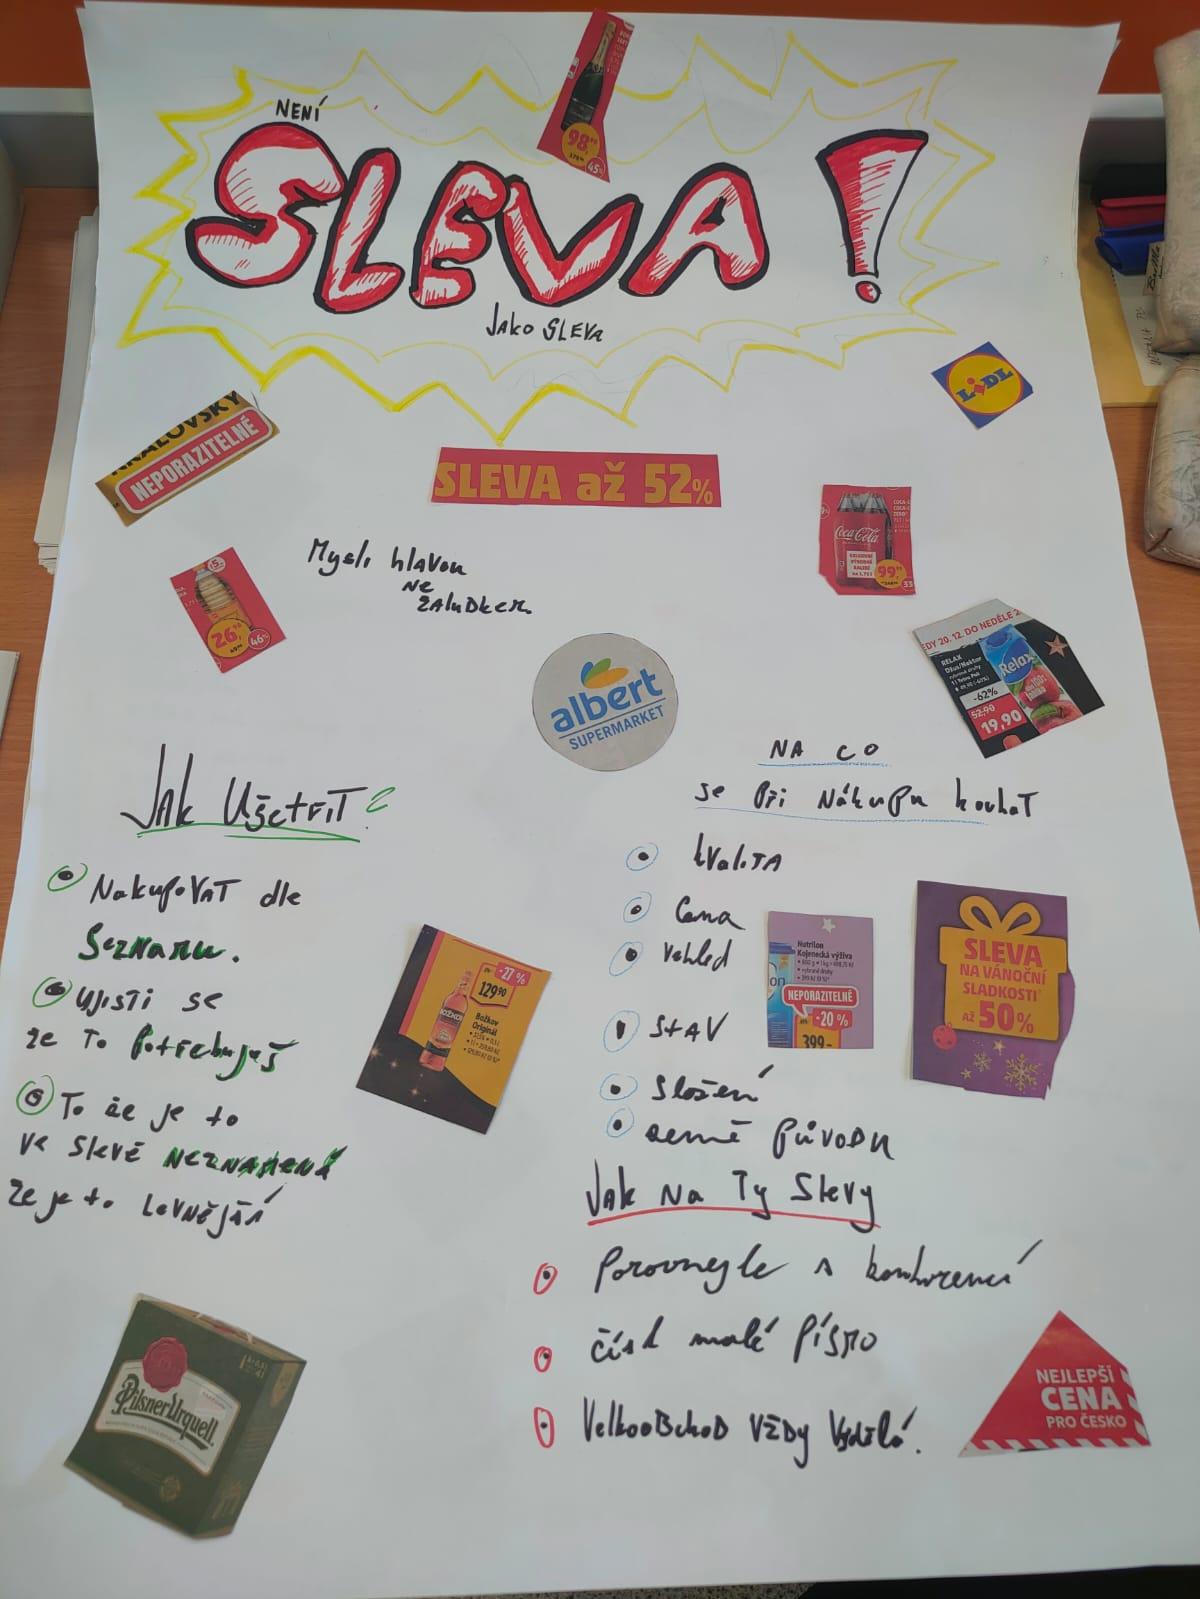 NENÍ
SLEVA!
JAKO SLEVA
98,90
45%
LIDL
KRÁLOVSKÝ
NEPORAZITELNÉ
SLEVA až 52%
Coca-Cola
99,90
33
Mysli hlavou
NE
ŽALUDKEM
26,90
46%
albert
SUPERMARKET
EDY 20. 12. DO NEDĚLE 2
RELAX
Džus/Nektar
vybrané druhy
1 l Tetra Pak
Relax
-62%
52,90
19,90
NA CO
se při NÁKUPU koukat
kvalita
Cena
Vzhled
STAV
Složení
země původu
JAK UŠETŘIT?
NakupovAT dle
Seznamu.
Ujisti se
že To Potřebuješ
To že je to
ve slevě NEZNAMENÁ
že je to Levnější
-27 %
129,90
BOŽKOV
Božkov
Originál
Nutrilon
Kojenecká výživa
NEPORAZITELNÉ
-20 %
399,-
SLEVA
NA VÁNOČNÍ
SLADKOSTI*
AŽ 50%
Jak Na Ty Slevy
Porovnejte s konkurencí
číst malé písmo
Velkoobchod Vždy Vydělá.
Pilsner Urquell
NEJLEPŠÍ
CENA
PRO ČESKO